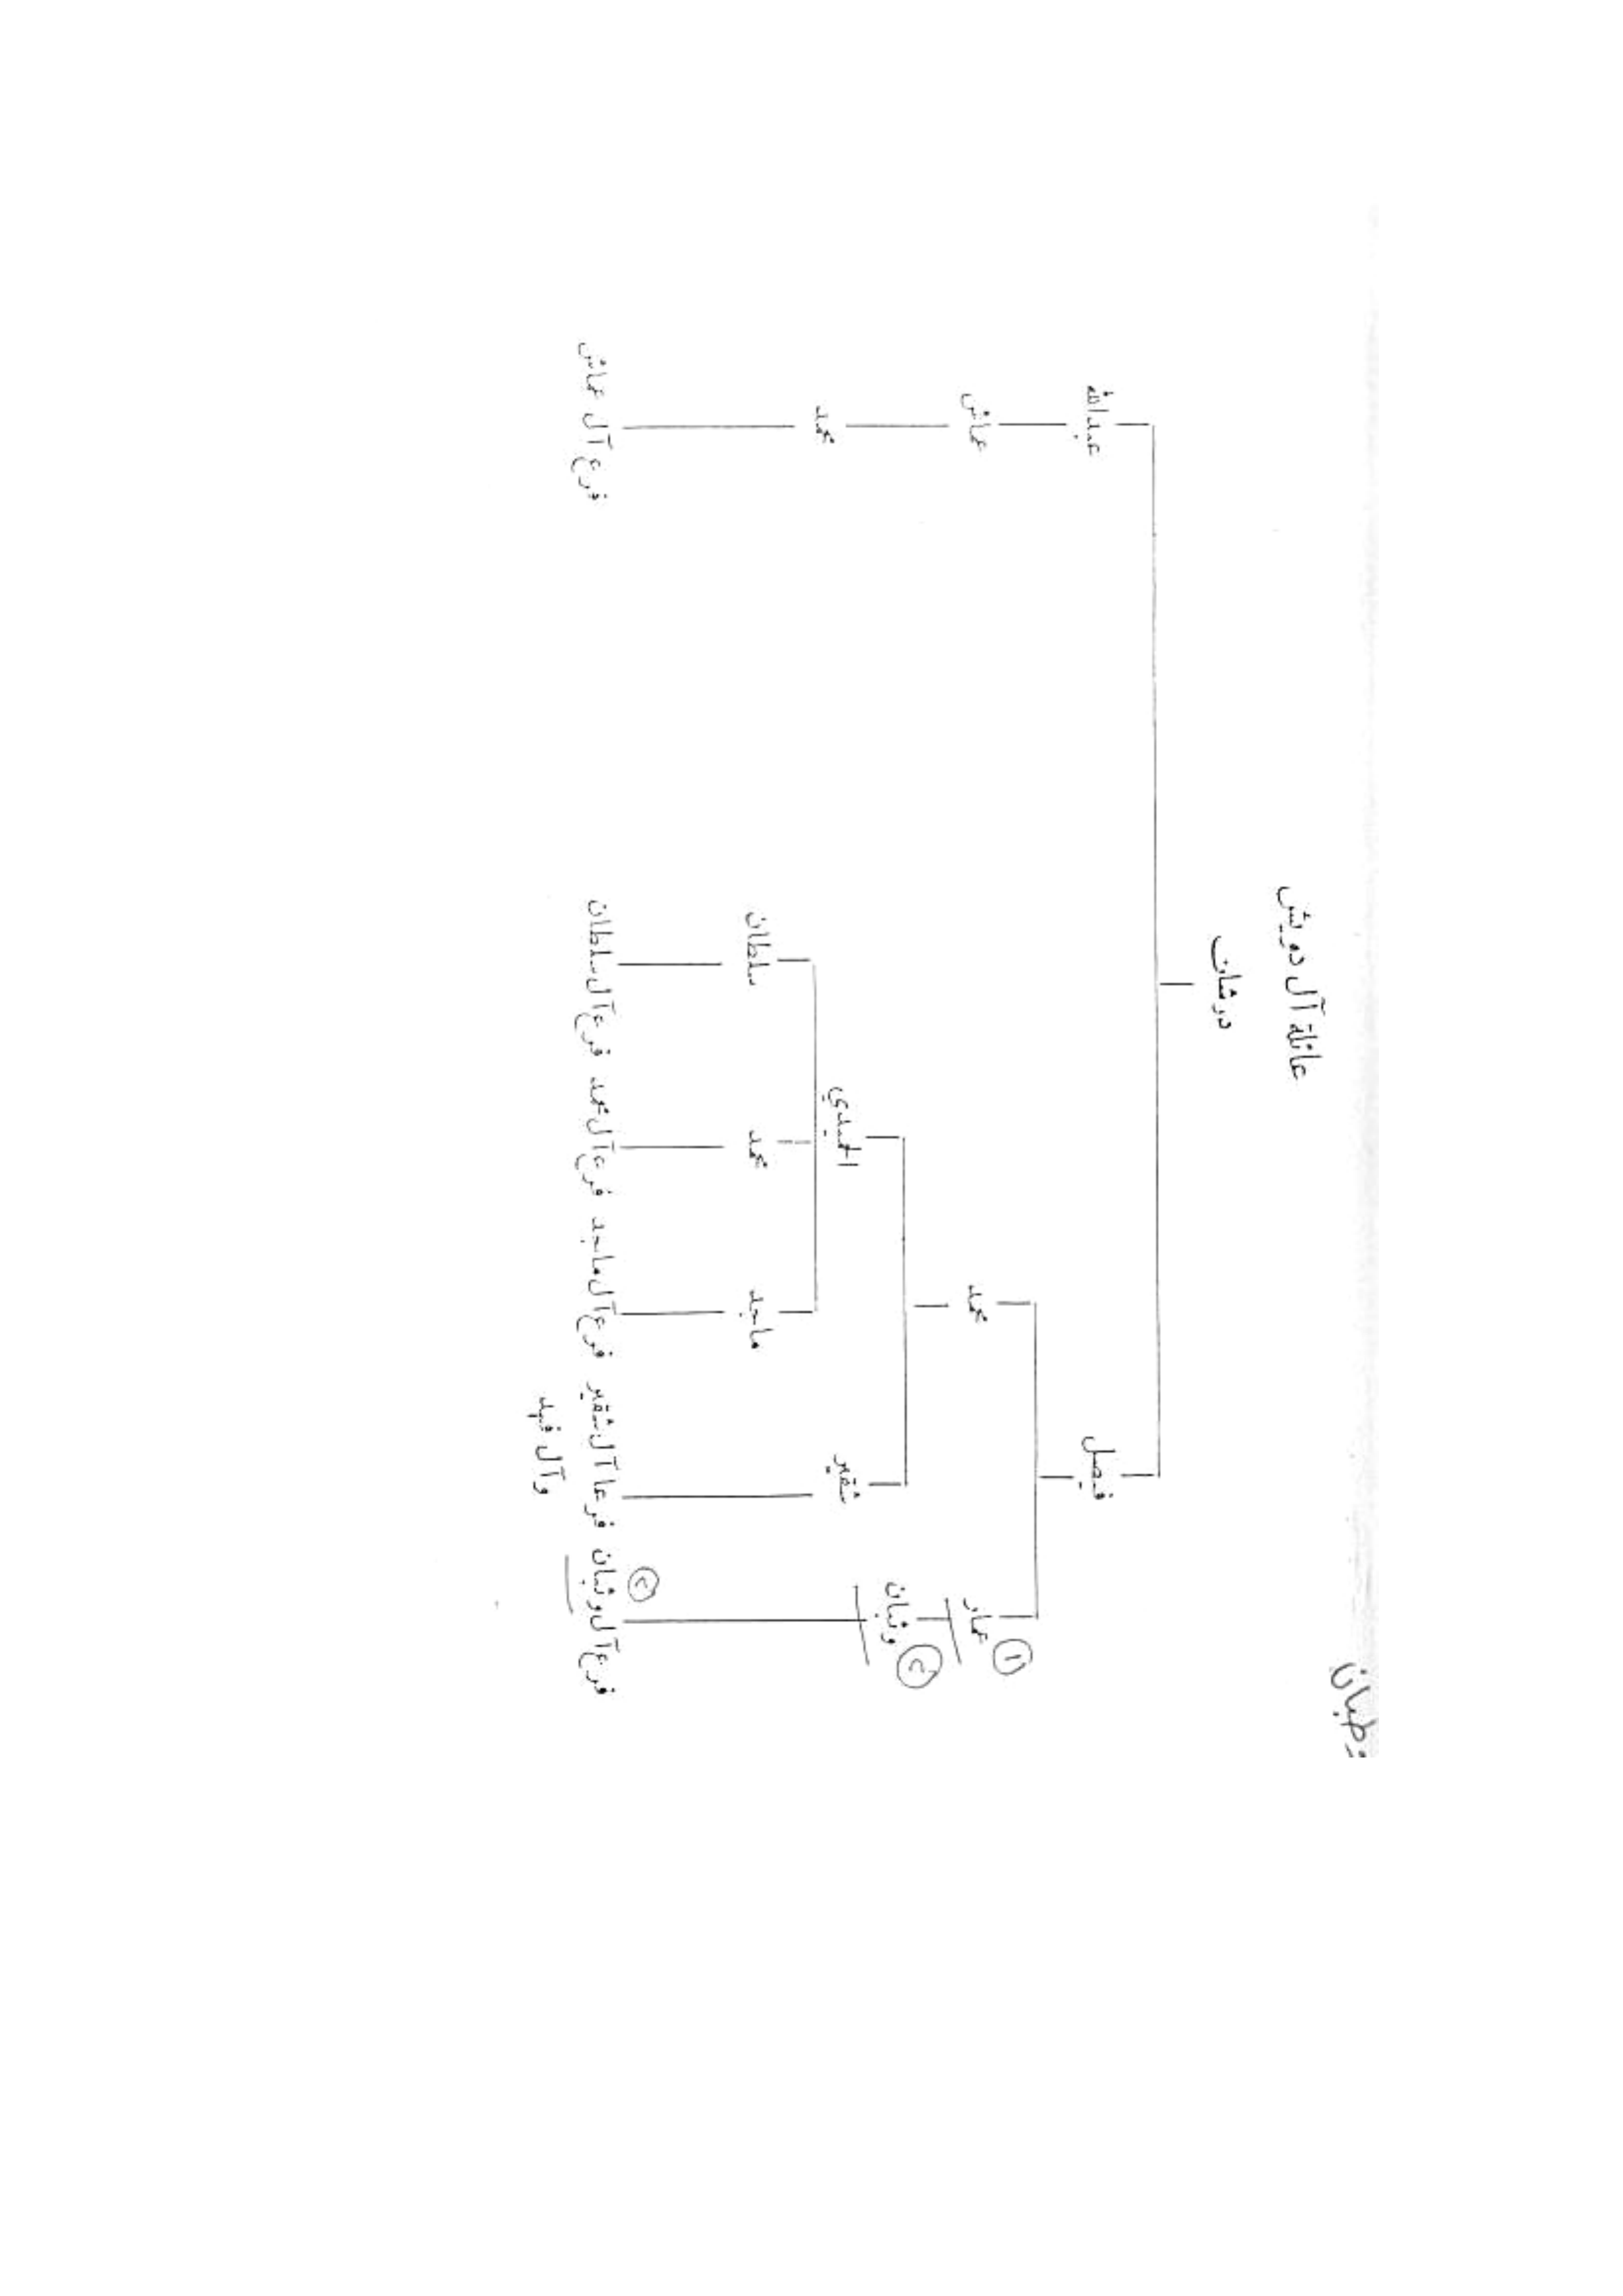 وطبان
عائلة آل دويش
فيصل
عبدالله
١
عمار
محمد
عماش
٢
وثبان
شقير
الحميدي
محمد
ماجد
محمد
سلطان
٢
فرع آل وثبان
فرعا آل شقير
وآل فهد
فرع آل ماجد
فرع آل محمد
فرع آل سلطان
فرع آل عماش